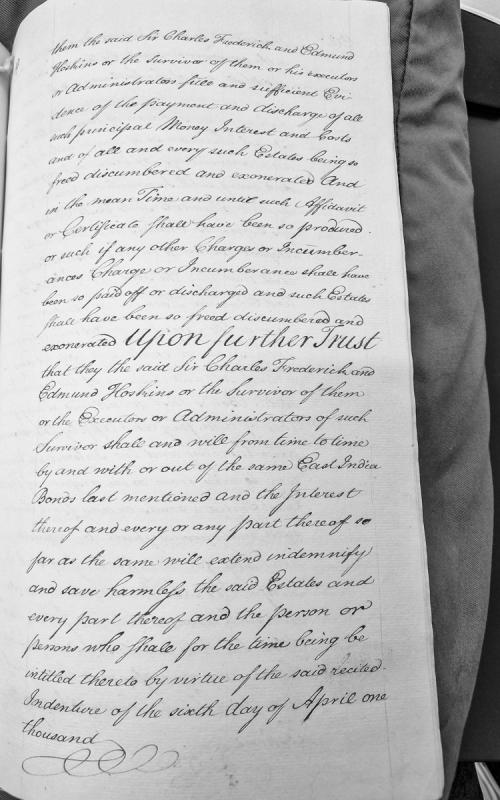 them the said Sir Charles Frederick and Edmund
Hoskins or the survivor of them or his executors
or Administrators full and sufficient Evi
dence of the payment and discharge of all
such principal Money Interest and Costs
and of all and every such Estates being so
freed discumbered and exonerated And
in the mean Time and until such Affidavit
or Certificate shall have been so produced.
or such if any other Charges or Incumber-
ances Charge or Incumberance shall have
been so paid off or discharged and such Estates
shall have been so freed discumbered and
exonerated Upon further Trust
that they the said Sir Charles Frederick and
Edmund Hoskins or the Survivor of them
or the Executors or Administrators of such
Survivor shall and will from time to time
by and with or out of the same East India
Bonds last mentioned and the Interest
thereof and every or any part thereof so
far as the same will extend indemnify
and save harmless the said Estates and
every part thereof and the person or
persons who shall for the time being be
intitled thereto by virtue of the said recited
Indenture of the sixth day of April one
thousand